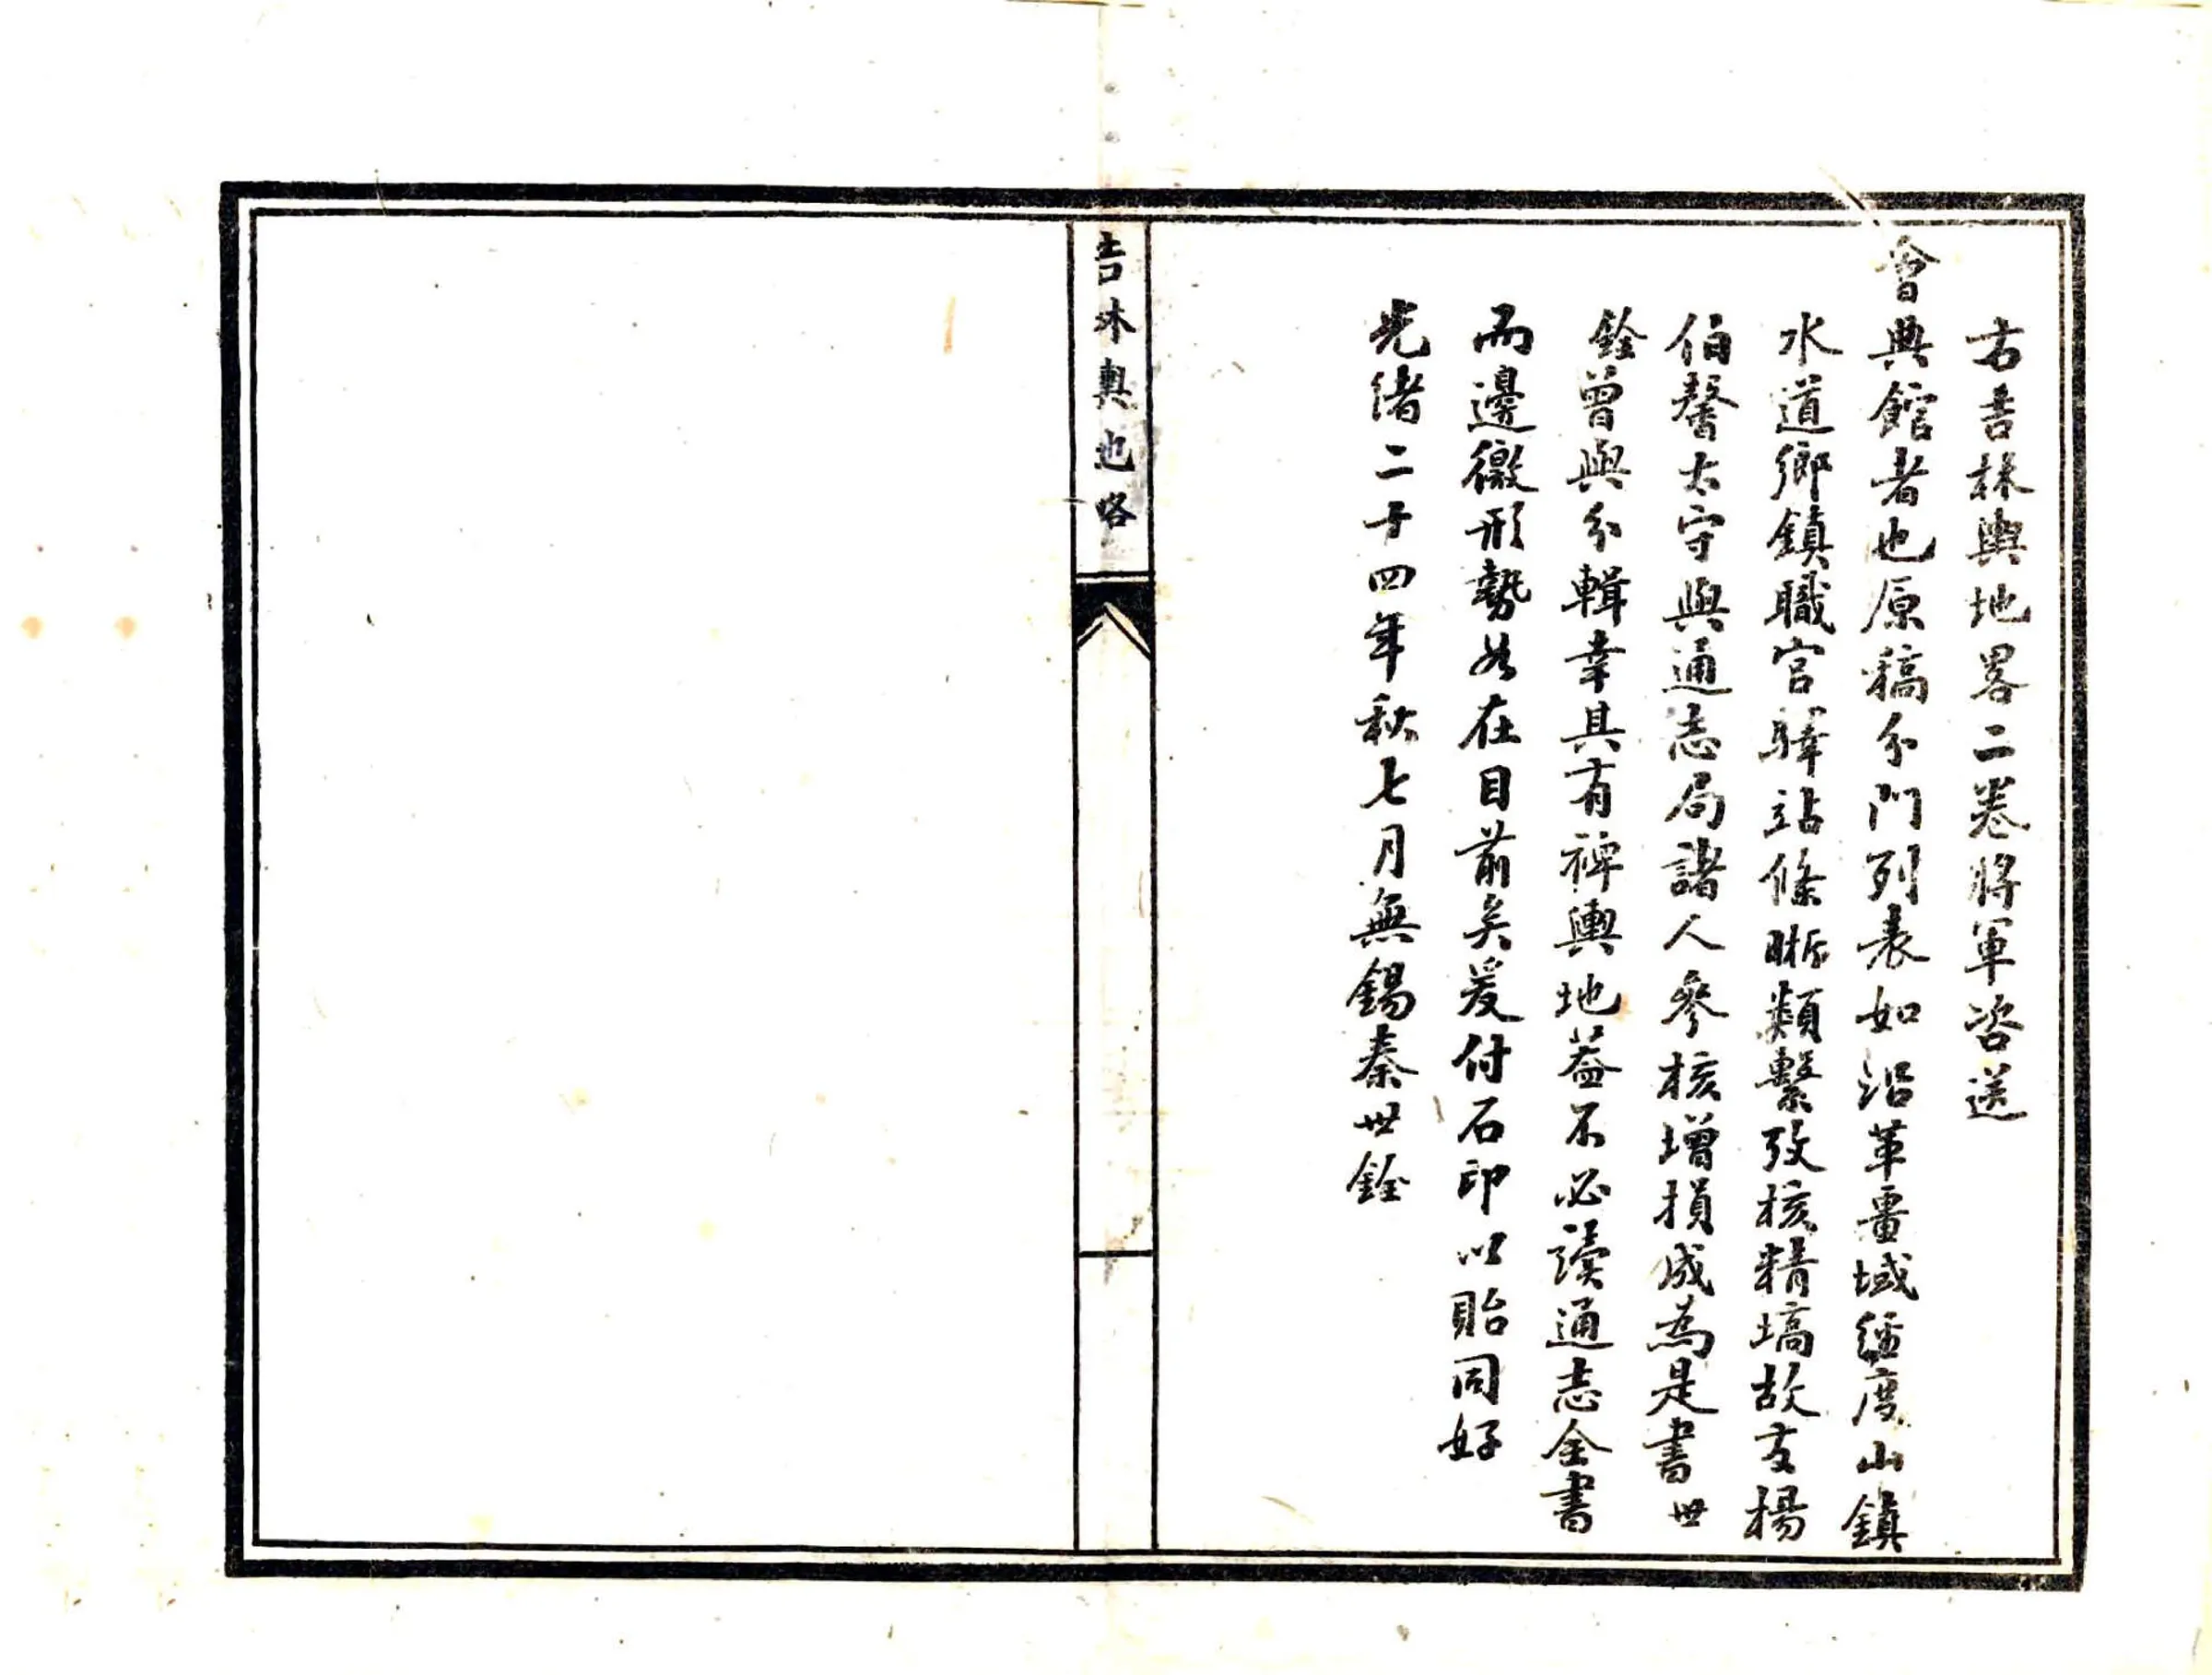 右吉林輿地畧二卷將軍咨送
會典館者也原稿分門列表如沿革畺域經度山鎮
水道鄉鎮職官驛站條晰類繫攷核精塙故友楊
伯馨太守與通志局諸人參核增損成為是書世
銓曾與分輯幸具有裨輿地葢不必讀通志全書
而邊徼形勢如在目前矣爰付石印以貽同好
光緒二十四年秋七月無錫秦世銓
吉林輿地略